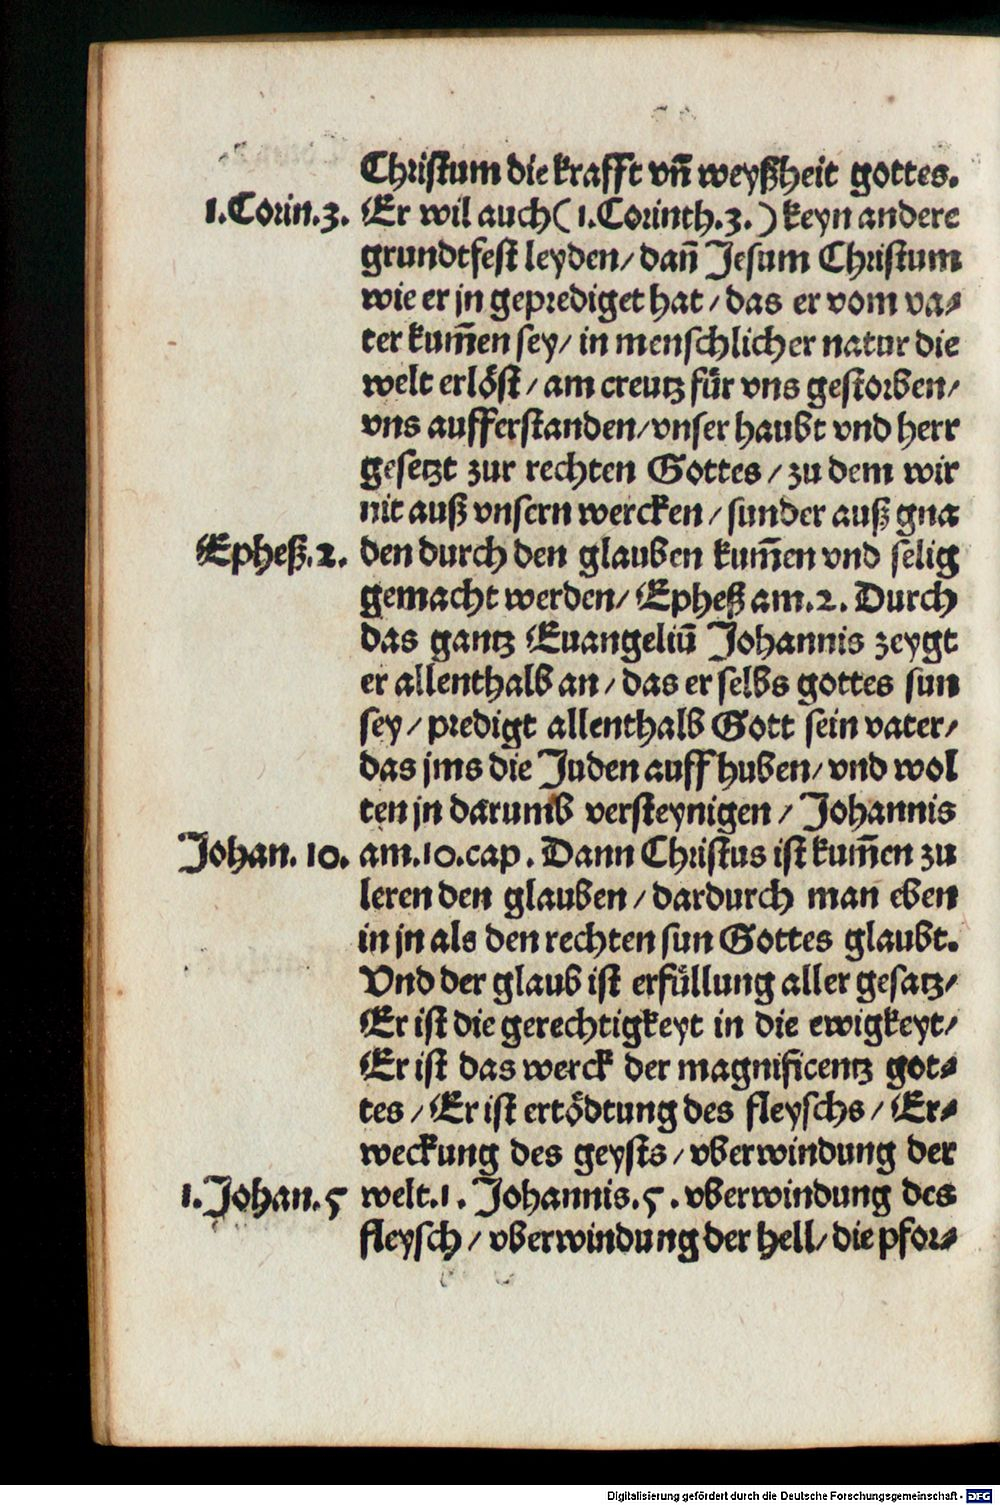 Christum die krafft vn̄ weyßheit gottes.
1.Corin.3.
Er wil auch (1.Corinth.3.) keyn andere
grundtfest leyden/ dan̄ Jesum Christum
wie er jn geprediget hat/ das er vom va⸗
ter kum̄en sey/ in menschlicher natur die
welt erlöst/ am creutz für vns gestorben/
vns aufferstanden/ vnser haubt vnd herr
gesetzt zur rechten Gottes/ zu dem wir
nit auß vnsern wercken/ sunder auß gna
Epheß.2.
den durch den glauben kum̄en vnd selig
gemacht werden/ Epheß am.2. Durch
das gantz Euangeliū Johannis zeygt
er allenthalb an/ das er selbs gottes sun
sey/ predigt allenthalb Gott sein vater/
das jms die Juden auff huben/ vnd wol
ten jn darumb versteynigen/ Johannis
Johan. 10.
am.10.cap. Dann Christus ist kum̄en zu
leren den glauben/ dardurch man eben
in jn als den rechten sun Gottes glaubt.
Vnd der glaub ist erfüllung aller gesatz/
Er ist die gerechtigkeyt in die ewigkeyt/
Er ist das werck der magnificentz got⸗
tes/ Er ist ertödtung des fleyschs/ Er⸗
weckung des geysts/ vberwindung der
1.Johan.5
welt.1. Johannis.5. vberwindung des
fleysch/ vberwindung der hell/ die pfor⸗
Digitalisierung gefördert durch die Deutsche Forschungsgemeinschaft - DFG